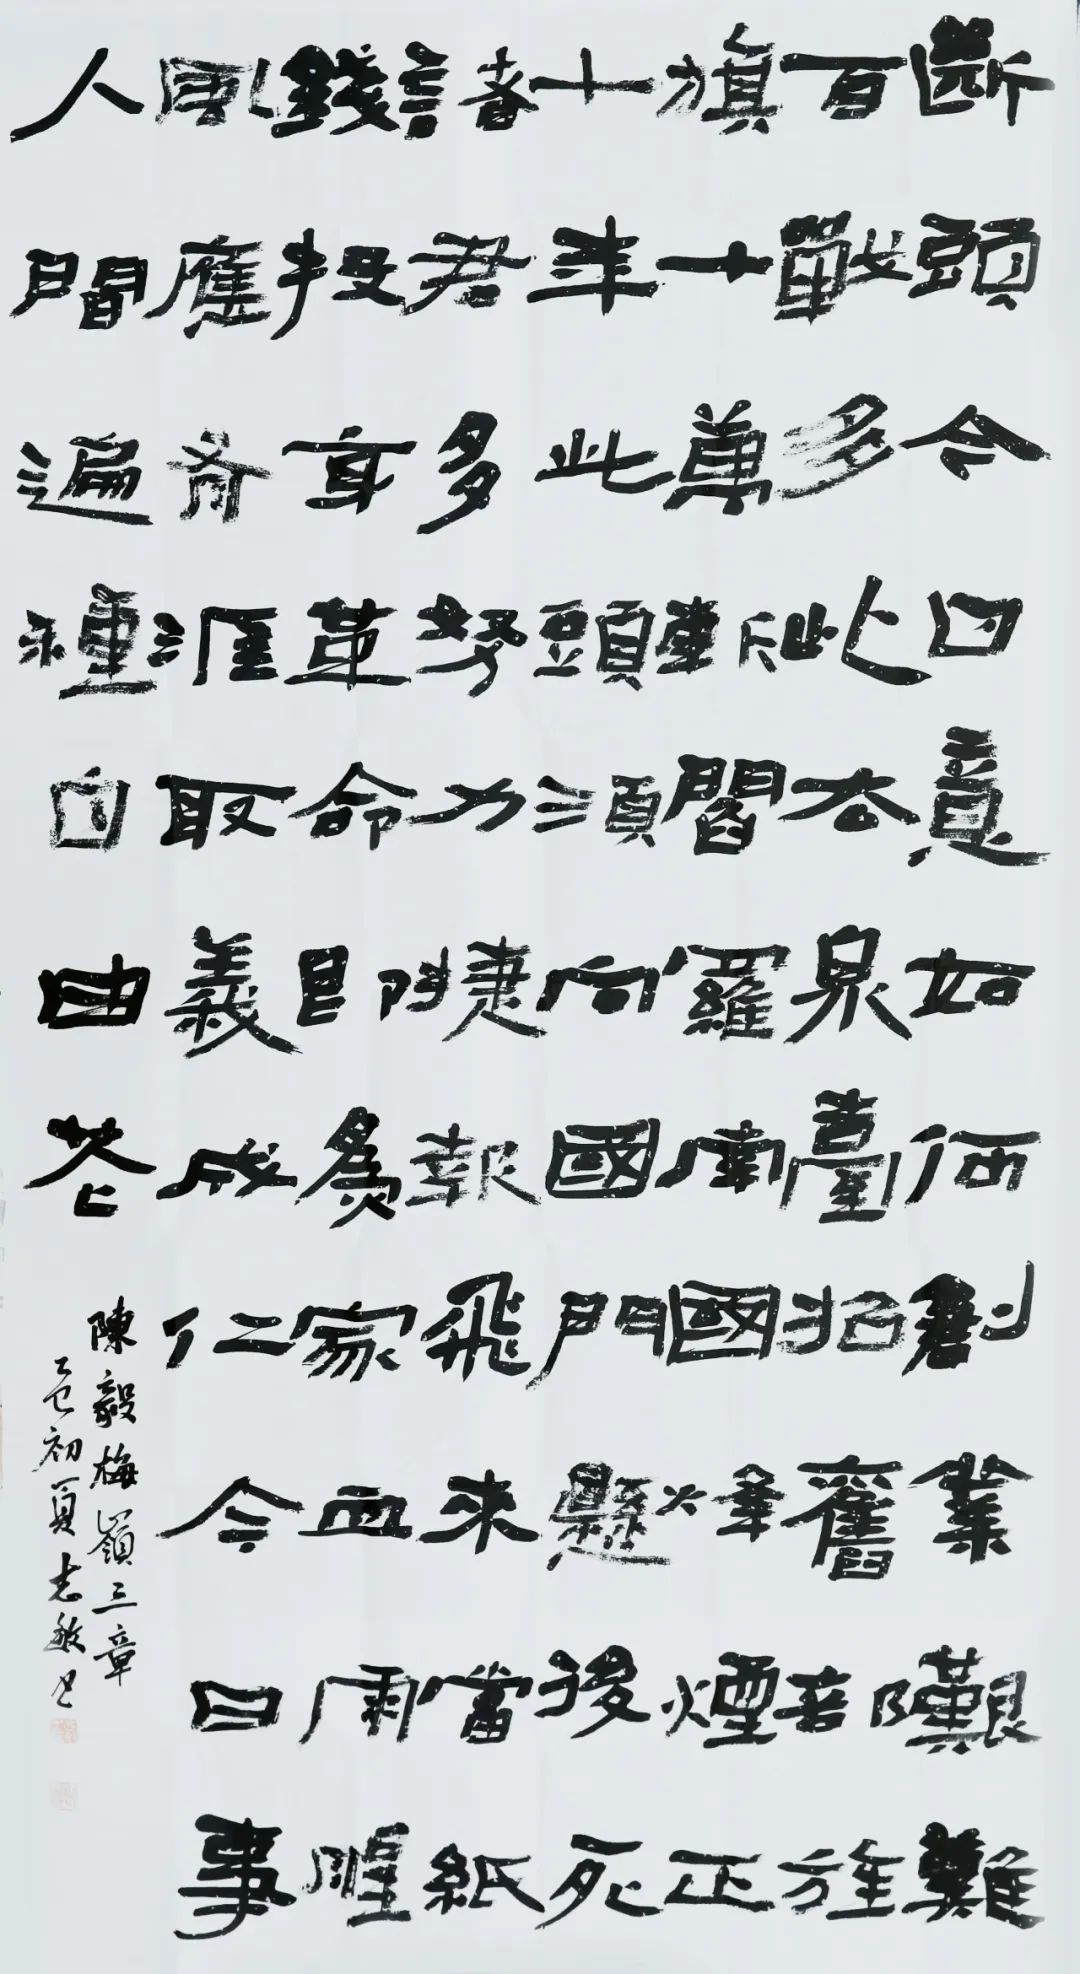 斷頭今日意如何創業艱難
百戰多此去泉臺招舊部旌
旗十萬斬閻羅南國烽煙正
十年此頭須向國門懸後死
諸君多努力捷報飛來當紙
錢投身革命即爲家血雨腥
風應有涯取義成仁今日事
人間遍種自由花
陳毅梅嶺三章
乙巳初夏志敏书